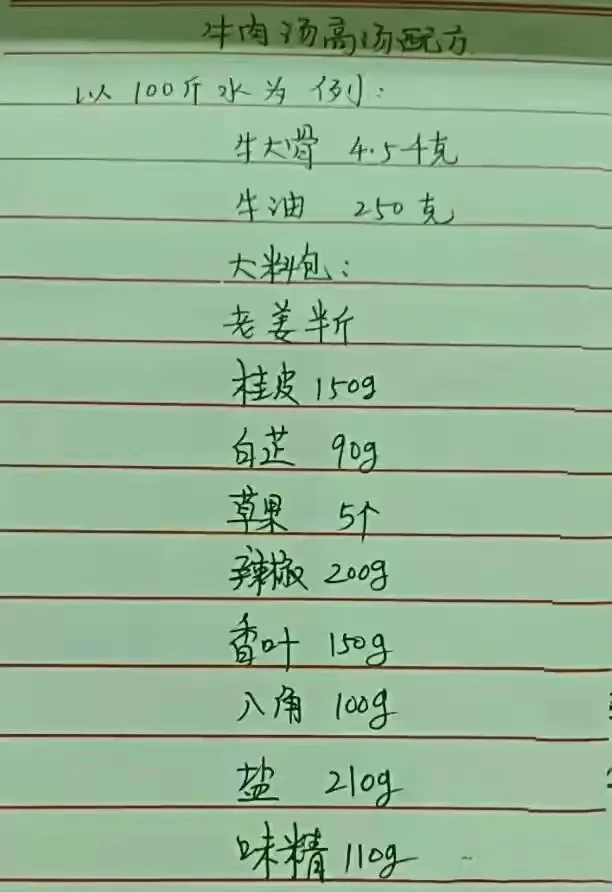 牛肉汤高汤配方
以100斤水为例:
牛大骨 4.5千克
牛油 250克
大料包:
老姜半斤
桂皮150g
白芷 90g
草果 5个
辣椒 200g
香叶 150g
八角 100g
盐 210g
味精 110g